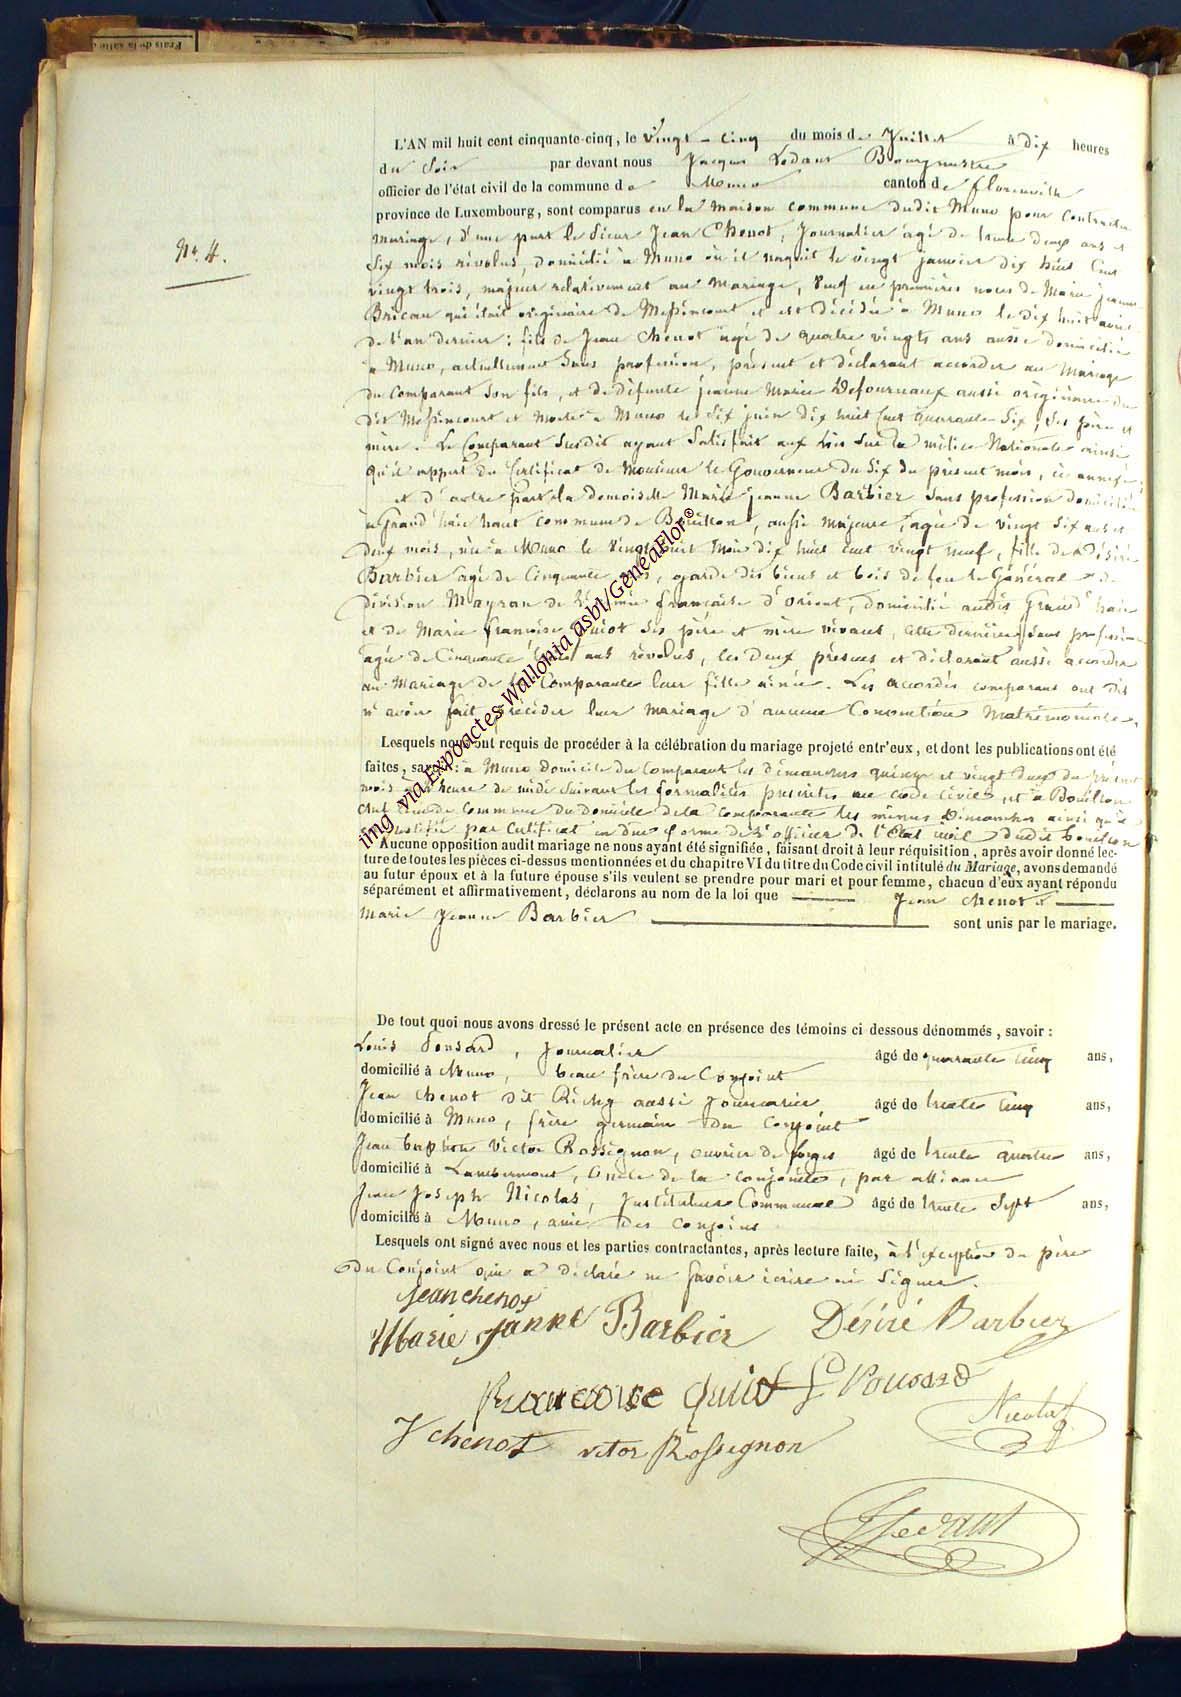 N.º 4.
L'AN mil huit cent cinquante-cinq, le vingt-cinq du mois de Juillet à dix heures
du Soir par devant nous Jacques Ledant Bourgmestre
officier de l'état civil de la commune de Muno canton de florenville
province de Luxembourg, sont comparus en la maison commune dudit Muno pour contracter
mariage, d'une part le Sieur Jean Chenot, Journalier âgé de trente deux ans et
Six mois révolus, domicilié à Muno où il naquit le vingt janvier dix huit Cent
vingt trois, majeur relativement au mariage, Veuf en premières noces de Marie jeanne
Bricau qui était originaire de Messincourt et est décédée à Muno le dix huit avril
de l'an dernier : fils de Jean Chenot âgé de quatre vingts ans aussi domicilié
à Muno, actuellement Sans profession, présent et déclarant accorder au Mariage
du Comparant Son fils, et de défunte jeanne Marie Defournaux aussi originaire du
dit Messincourt et morte à Muno le Six juin dix huit Cent quarante Six, Ses père et
mère. Le Comparant Susdit ayant Satisfait aux lois Sur la milice Nationale ainsi
qu'il appert du Certificat de Monsieur le Gouverneur du Six du présent mois, ci annexé ;
et d'autre part la demoiselle Marie jeanne Barbier Sans profession domiciliée
à Grand'haie haut commune de Bouillon, aussi majeure, âgée de vingt Six ans et
deux mois, née à Muno le Vingt huit Mai dix huit cent vingt neuf, fille de Désiré
Barbier âgé de Cinquante ans, garde des biens et bois de feu le Général de
division Mayran de l'armée française d'Orient, domicilié audit Grand'haie
et de Marie françoise Guiot Ses père et mère vivants, cette dernière Sans profession
âgée de Cinquante ans révolus, les deux présens et déclarant aussi accorder
au Mariage de la Comparante leur fille aînée. Les accordés comparans ont dit
n'avoir fait précéder leur mariage d'aucune Convention Matrimoniale.
Lesquels nous ont requis de procéder à la célébration du mariage projeté entr'eux, et dont les publications ont été
faites, savoir : à Muno domicile du Comparant les dimanches quinze et vingt deux du présent
mois à l'heure de midi suivant les formalités prescrites au code civil, et à Bouillon
chef lieu de Commune du domicile de la comparante les mêmes Dimanches ainsi qu'il
est justifié par Certificat en due forme de l'officier de l'état civil dudit bouillon
Aucune opposition audit mariage ne nous ayant été signifiée, faisant droit à leur réquisition, après avoir donné lec-
ture de toutes les pièces ci-dessus mentionnées et du chapitre VI du titre du Code civil intitulé du Mariage, avons demandé
au futur époux et à la future épouse s'ils veulent se prendre pour mari et pour femme, chacun d'eux ayant répondu
séparément et affirmativement, déclarons au nom de la loi que Jean Chenot &
Marie Jeanne Barbier sont unis par le mariage.
De tout quoi nous avons dressé le présent acte en présence des témoins ci dessous dénommés, savoir :
Louis Ponsard, Journalier âgé de quarante Cinq ans,
domicilié à Muno, beau frère du Conjoint
Jean Chenot dit aussi Journalier âgé de trente Cinq ans,
domicilié à Muno, frère germain du Conjoint
Jean baptiste Victor Rossignon, ouvrier de forges âgé de trente quatre ans,
domicilié à Lambermont, Oncle de la conjointe, par alliance
Jean Joseph Nicolas, Instituteur Communal âgé de trente Sept ans,
domicilié à Muno, ami des conjoins
Lesquels ont signé avec nous et les parties contractantes, après lecture faite, à l'exception du père
du Conjoint qui a déclaré ne Savoir écrire ni Signer.
Jean chenot
Marie Janne Barbier Désiré Barbier
Francoise Guiot Ponsard
Nicolas
J chenot vitor Rossignon
Ledant
img via Expoactes-Wallonia asbl/GeneaFlor©